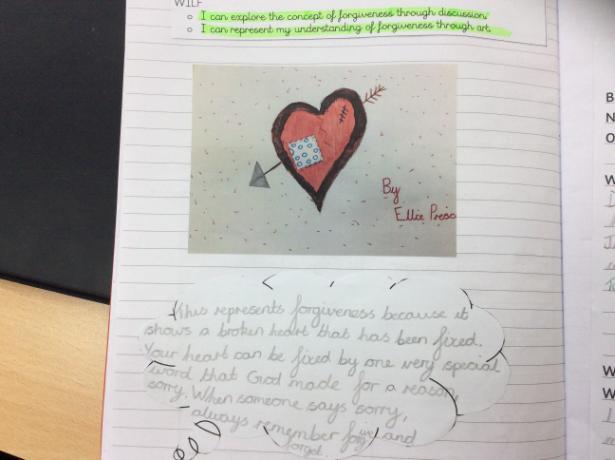 WILF
I can explore the concept of forgiveness through discussion.
I can represent my understanding of forgiveness through art.
By
Ellie
This represents forgiveness because it
shows a broken heart that has been fixed.
Your heart can be fixed by one very special
word that God made for a reason,
sorry. When someone says sorry,
always remember forgive and
forget
B
N
O
W
W
W